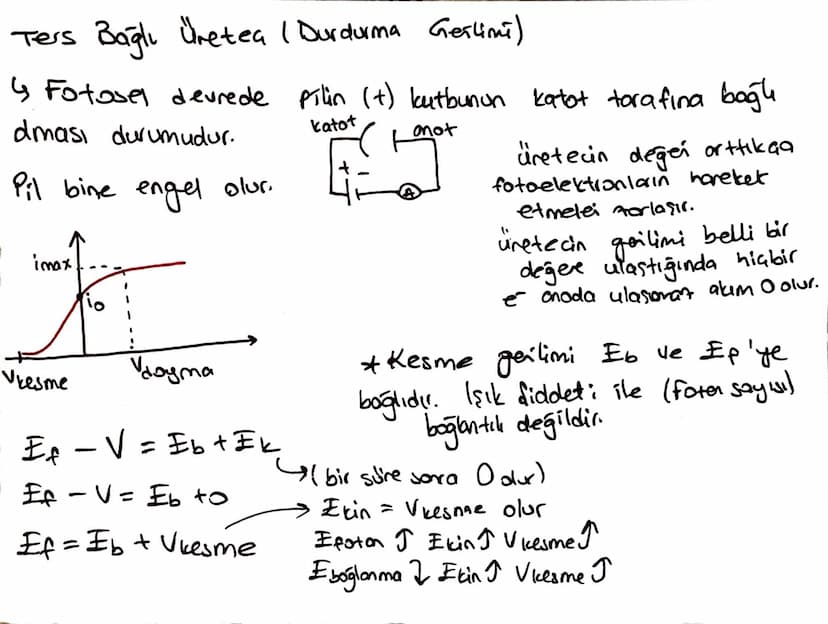 Ters Bağlı Üreteç (Durdurma Gerilimi)
↳ Fotosel devrede pilin (+) kutbunun katot tarafına bağlı
olması durumudur.
Pil bine engel olur.
katot anot
+ -
A
üretecin değeri arttıkça
fotoelektronların hareket
etmeleri zorlaşır.
üretecin gerilimi belli bir
değere ulaştığında hiçbir
e⁻ anoda ulaşamaz akım 0 olur.
imax
io
Vkesme
Vdoyma
* Kesme gerilimi Eb ve Ef'ye
bağlıdır. Işık şiddeti ile (foton sayısı)
bağlantılı değildir.
Ef - V = Eb + Ek
→ (bir süre sonra 0 olur)
Ef - V = Eb + 0
→ Ekin = Vkesme olur
Ef = Eb + Vkesme
Efoton ↑ Ekin ↑ Vkesme ↑
Ebağlanma ↓ Ekin ↑ Vkesme ↑